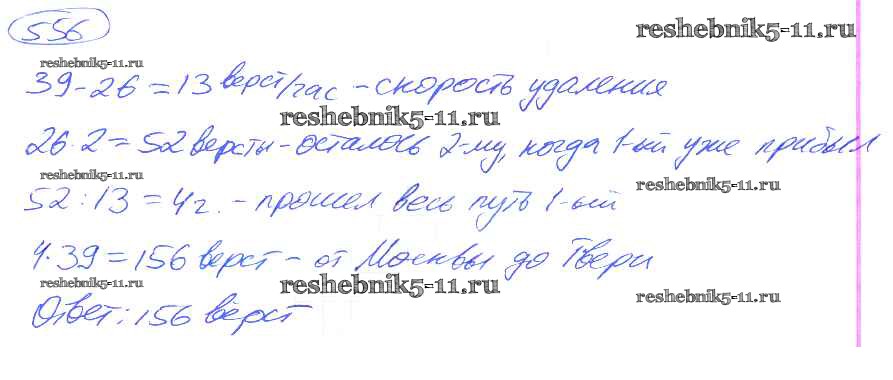 556
reshebnik5-11.ru
reshebnik5-11.ru
39-26=13 верст/час - скорость удаления
reshebnik5-11.ru
26·2=52 версты - осталось 2-му, когда 1-ый уже прибыл
reshebnik5-11.ru
reshebnik5-11.ru
52:13=4 г. - прошел весь путь 1-ый
4·39=156 верст - от Москвы до Твери
reshebnik5-11.ru
reshebnik5-11.ru
reshebnik5-11.ru
Ответ: 156 вёрст